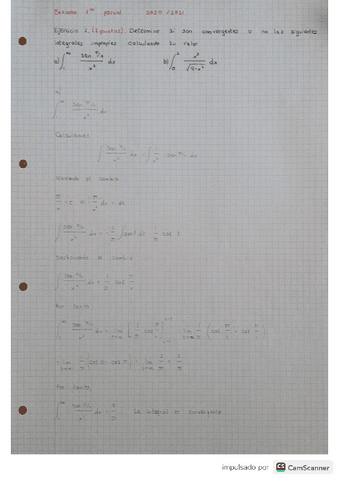 Examen 1er parcial 2020/2021
Ejercicio 2. (2 puntos). Determine si son convergentes o no las siguientes
integrales impropias calculando su valor
a) ∫₁^∞ sen π/x / x² dx b) ∫₀ x³ / √(9-x²) dx
a)
∫₁^∞ sen π/x / x² dx
Calculamos
∫ sen π/x / x² dx = ∫ 1/x² sen π/x dx
Haciendo el cambio
π/x = t ⇒ -π/x² dx = dt
∫ sen π/x / x² dx = -1/π ∫ sen t dt = 1/π cos t
Deshaciendo el cambio
∫ sen π/x / x² dx = 1/π cos π/x
Por tanto
∫₁^∞ sen π/x / x² dx = lim [1/π cos π/x] = lim 1/π (cos π/ - cos π/)
= lim 1/π (cos 0 - cos π) = lim 2/π = 2/π
Por tanto,
∫₁^∞ sen π/x / x² dx = 2/π La integral es convergente
impulsado por CS CamScanner